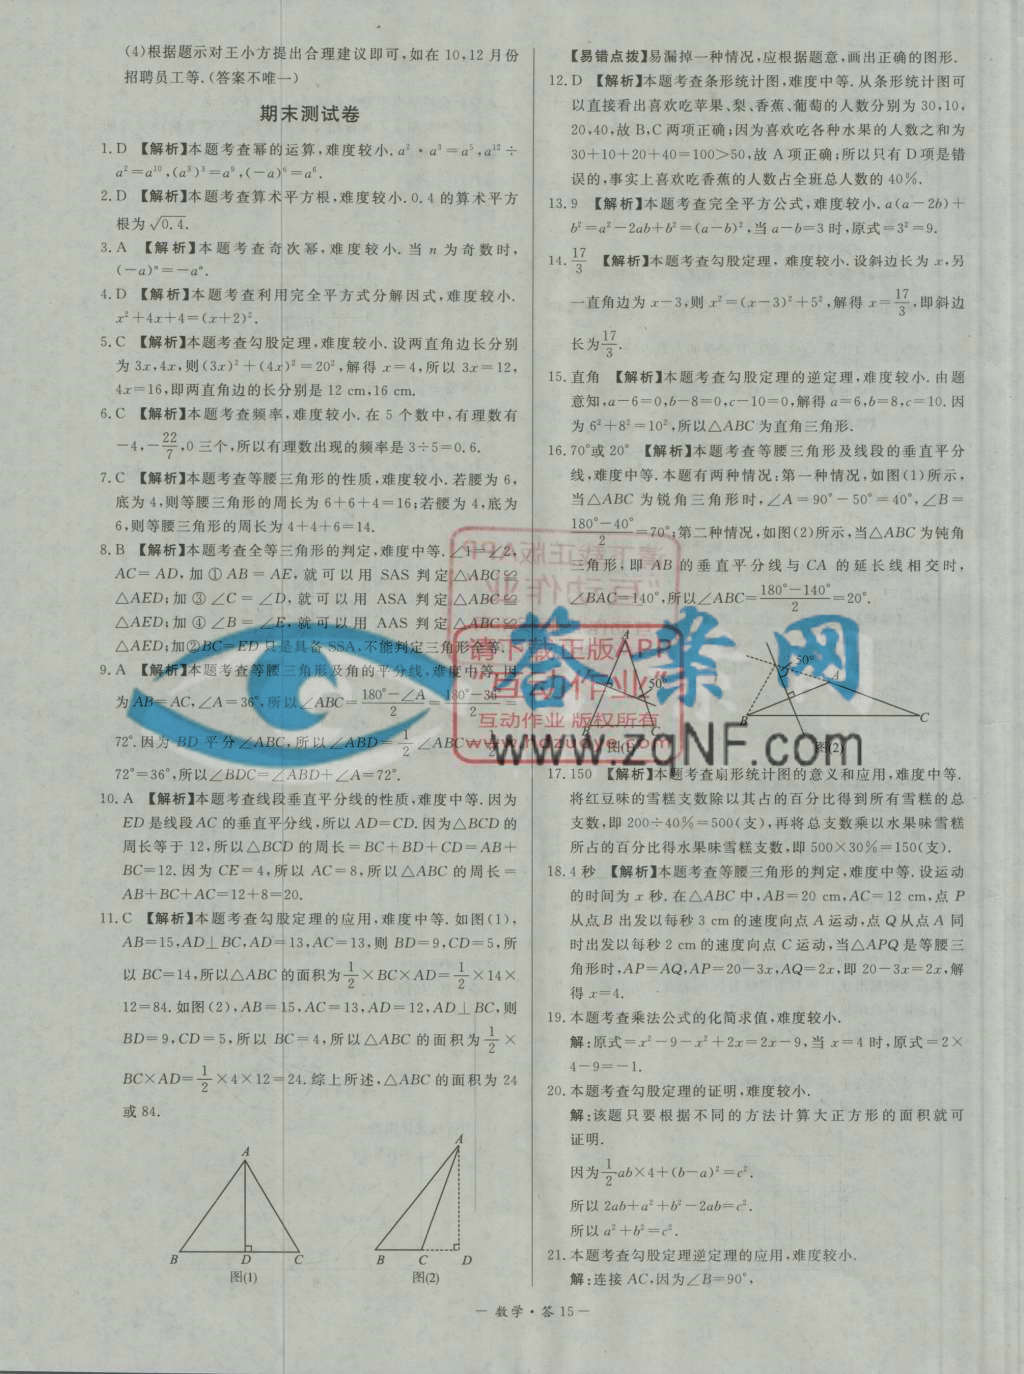 (4)根据题示对王小方提出合理建议即可,如在10,12月份
招聘员工等.(答案不唯一)
期末测试卷
1. D 【解析】本题考查幂的运算,难度较小.a²·a³=a⁵,a¹²÷
a²=a¹⁰,(a³)³=a⁹,(-a)⁶=a⁶.
2. D 【解析】本题考查算术平方根,难度较小.0.4的算术平方
根为√0.4.
3. A 【解析】本题考查奇次幂,难度较小.当 n 为奇数时,
(-a)ⁿ=-aⁿ.
4. D 【解析】本题考查利用完全平方式分解因式,难度较小.
x²+4x+4=(x+2)².
5. C 【解析】本题考查勾股定理,难度较小.设两直角边长分别
为3x,4x,则(3x)²+(4x)²=20²,解得 x=4,所以3x=12,
4x=16,即两直角边的长分别是12 cm,16 cm.
6. C 【解析】本题考查频率,难度较小.在5个数中,有理数有
-4,-22/7,0三个,所以有理数出现的频率是3÷5=0.6.
7. C 【解析】本题考查等腰三角形的性质,难度较小.若腰为6,
底为4,则等腰三角形的周长为6+6+4=16;若腰为4,底为
6,则等腰三角形的周长为4+4+6=14.
8. B 【解析】本题考查全等三角形的判定,难度中等.∠1=∠2,
AC=AD,加①AB=AE,就可以用SAS判定△ABC≌
△AED;加③∠C=∠D,就可以用ASA判定△ABC≌
△AED;加④∠B=∠E,就可以用AAS判定△ABC≌
△AED;加②BC=ED只是具备SSA,不能判定三角形全等.
9. A 【解析】本题考查等腰三角形及角的平分线,难度中等.因
为AB=AC,∠A=36°,所以∠ABC=(180°-∠A)/2=(180°-36°)/2=
72°.因为BD平分∠ABC,所以∠ABD=1/2∠ABC=1/2×
72°=36°,所以∠BDC=∠ABD+∠A=72°.
10. A 【解析】本题考查线段垂直平分线的性质,难度中等.因为
ED是线段AC的垂直平分线,所以AD=CD.因为△BCD的
周长等于12,所以△BCD的周长=BC+BD+CD=AB+
BC=12.因为CE=4,所以AC=8,所以△ABC的周长=
AB+BC+AC=12+8=20.
11. C 【解析】本题考查勾股定理的应用,难度中等.如图(1),
AB=15,AD⊥BC,AD=13,AC=13,则BD=9,CD=5,所
以BC=14,所以△ABC的面积为1/2×BC×AD=1/2×14×
12=84.如图(2),AB=15,AC=13,AD=12,AD⊥BC,则
BD=9,CD=5,所以BC=4,所以△ABC的面积为1/2×
BC×AD=1/2×4×12=24.综上所述,△ABC的面积为24
或84.
A
B D C
图(1)
A
B C D
图(2)
【易错点拨】易漏掉一种情况,应根据题意,画出正确的图形.
12. D 【解析】本题考查条形统计图,难度中等.从条形统计图可
以直接看出喜欢吃苹果、梨、香蕉、葡萄的人数分别为30,10,
20,40,故B,C两项正确;因为喜欢吃各种水果的人数之和为
30+10+20+40=100>50,故A项正确;所以只有D项是错
误的,事实上喜欢吃香蕉的人数占全班总人数的40%.
13. 9 【解析】本题考查完全平方公式,难度较小.a(a-2b)+
b²=a²-2ab+b²=(a-b)²,当a-b=3时,原式=3²=9.
14. 17/3 【解析】本题考查勾股定理,难度较小.设斜边长为x,另
一直角边为x-3,则x²=(x-3)²+5²,解得x=17/3,即斜边
长为17/3.
15. 直角 【解析】本题考查勾股定理的逆定理,难度较小.由题
意知,a-6=0,b-8=0,c-10=0,解得a=6,b=8,c=10.因
为6²+8²=10²,所以△ABC为直角三角形.
16. 70°或20° 【解析】本题考查等腰三角形及线段的垂直平分
线,难度中等.本题有两种情况:第一种情况,如图(1)所示,
当△ABC为锐角三角形时,∠A=90°-50°=40°,∠B=
(180°-40°)/2=70°;第二种情况,如图(2)所示,当△ABC为钝角
三角形,即AB的垂直平分线与CA的延长线相交时,
∠BAC=140°,所以∠ABC=(180°-140°)/2=20°.
A
50°
B C
图(1)
50°
A
B C
图(2)
17. 150 【解析】本题考查扇形统计图的意义和应用,难度中等.
将红豆味的雪糕支数除以其占的百分比得到所有雪糕的总
支数,即200÷40%=500(支),再将总支数乘以水果味雪糕
所占的百分比得水果味雪糕支数,即500×30%=150(支).
18. 4秒 【解析】本题考查等腰三角形的判定,难度中等.设运动
的时间为x秒.在△ABC中,AB=20 cm,AC=12 cm,点P
从点B出发以每秒3 cm的速度向点A运动,点Q从点A同
时出发以每秒2 cm的速度向点C运动,当△APQ是等腰三
角形时,AP=AQ,AP=20-3x,AQ=2x,即20-3x=2x,解
得x=4.
19. 本题考查乘法公式的化简求值,难度较小.
解:原式=x²-9-x²+2x=2x-9,当x=4时,原式=2×
4-9=-1.
20. 本题考查勾股定理的证明,难度较小.
解:该题只要根据不同的方法计算大正方形的面积就可
证明.
因为1/2ab×4+(b-a)²=c².
所以2ab+a²+b²-2ab=c².
所以a²+b²=c².
21. 本题考查勾股定理逆定理的应用,难度较小.
解:连接AC,因为∠B=90°,
— 数学·答15 —
请下载正版APP
"互动作业"
请下载正版APP
"互动作业"
互动作业 版权所有
www.hdzuoye.com
答案网
www.zqNF.com